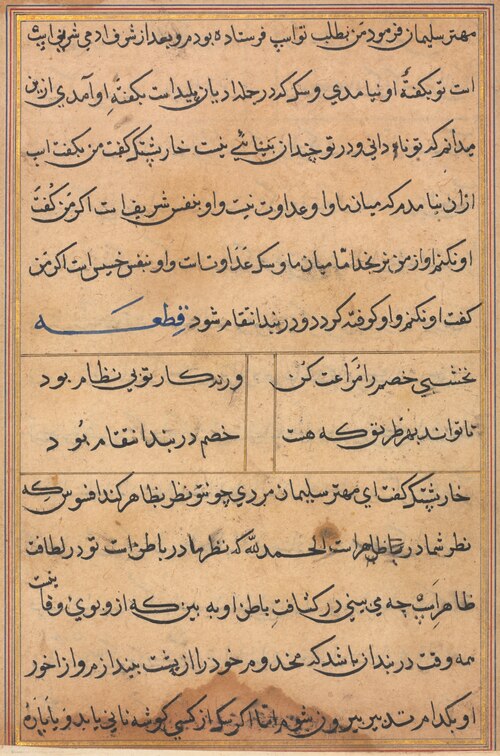 مهتر سلیمان فرمود من بطلب تو اسپ فرستاده بودم و بعد از شرف ادمی شریف اسپ
است تو بکفتهٔ او نیامدی و سک که در جلد از یان پلید است بکفتهٔ او آمدی ازین
میدانم که تو نادانی و در تو چندان بینائی نیست خارپشتک کفت من بکفت اسپ
ازان نیامدم که میان ما و او عداوت نیست و او بنفس شریف است اکر من کفت
او نکنم او از من نرنجد اما میان ما و سک عداوت است و او بنفس خسیس است اکر من
کفت او نکنم و او کوفته کردد و در بند انتقام شود قطعه
نخشبی خصم را مراعت کن ورنه کار تو بی نظام بود
تا تواند بهر طریق که هست خصم در بند انتقام بود
خارپشتک کفت ای مهتر سلیمان مردی چو تو نظر بظاهر کند افسوس که
نظر شما در ظاهر است الحمد لله که نظر ما در باطن است تو در لطافت
ظاهر اسپ چه می بینی در کثافت باطن او به بین که ازو بوی وفا نیست
همه وقت در بند ان باشد که مخدوم خود را از پشت بیندازم و از اخور
او بکدام تدبیر بیرون شوم اما اکر سک از کسی کوشه نانی یابد و یا پاره